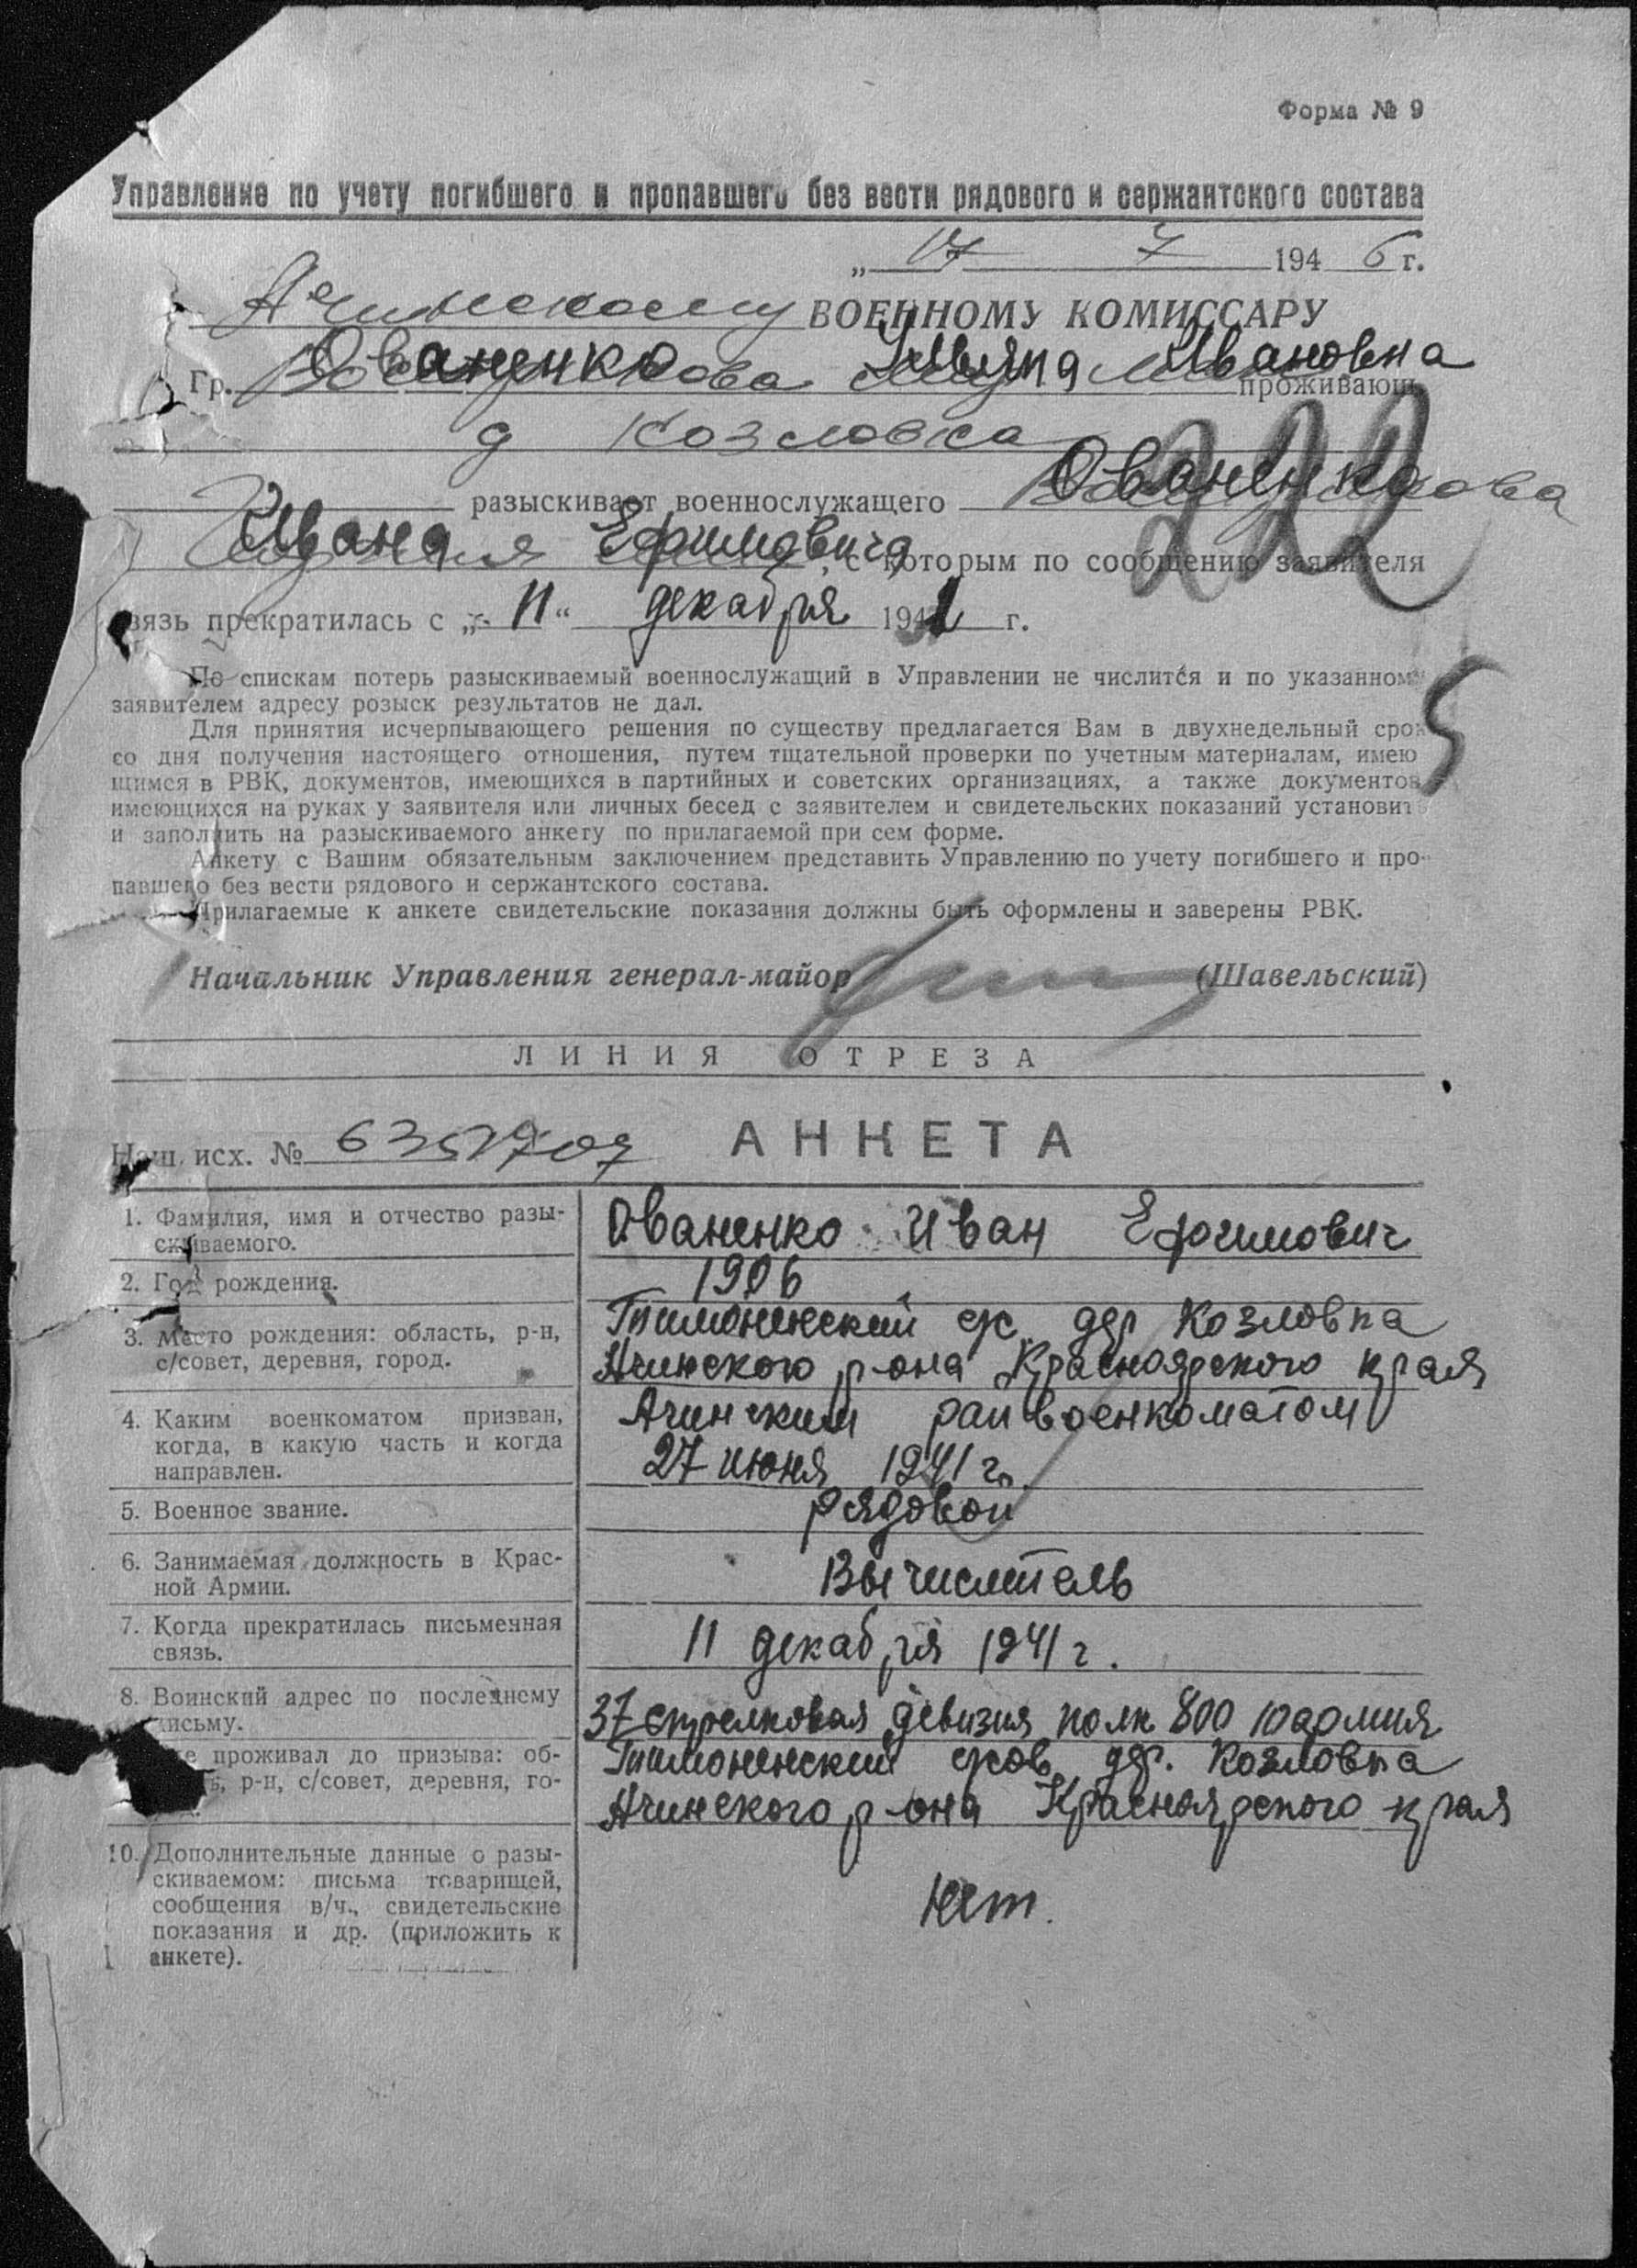 Форма № 9
Управление по учету погибшего и пропавшего без вести рядового и сержантского состава
„ 17 7 1946 г.
Ачинскому ВОЕННОМУ КОМИССАРУ
Гр. Ованенко Ульяна Ивановна проживающ
д Козловка
разыскивает военнослужащего Ованенко
Ивана Ефимовича, с которым по сообщению заявителя
связь прекратилась с „ 11 “ декабря 1941 г.
По спискам потерь разыскиваемый военнослужащий в Управлении не числится и по указанному
заявителем адресу розыск результатов не дал.
Для принятия исчерпывающего решения по существу предлагается Вам в двухнедельный срок
со дня получения настоящего отношения, путем тщательной проверки по учетным материалам, имею
щимся в РВК, документов, имеющихся в партийных и советских организациях, а также документов
имеющихся на руках у заявителя или личных бесед с заявителем и свидетельских показаний установить
и заполнить на разыскиваемого анкету по прилагаемой при сем форме.
Анкету с Вашим обязательным заключением представить Управлению по учету погибшего и про-
павшего без вести рядового и сержантского состава.
Прилагаемые к анкете свидетельские показания должны быть оформлены и заверены РВК.
222
5
Начальник Управления генерал-майор (Шавельский)
ЛИНИЯ ОТРЕЗА
Наш исх. № АНКЕТА
1. Фамилия, имя и отчество разы-
скиваемого.
Ованенко Иван Ефимович
2. Год рождения.
1906
3. Место рождения: область, р-н,
с/совет, деревня, город.
Тимонинский с/с. дер Козловка
Ачинского р-она Красноярского края
4. Каким военкоматом призван,
когда, в какую часть и когда
направлен.
Ачинским райвоенкоматом
27 июня 1941 г.
5. Военное звание.
рядовой
6. Занимаемая должность в Крас-
ной Армии.
Вычислитель
7. Когда прекратилась письменная
связь.
11 декабря 1941 г.
8. Воинский адрес по последнему
письму.
37 стрелковая девизия полк 800 10 армия
е проживал до призыва: об-
ь, р-н, с/совет, деревня, го-
Тимонинский с/сов. дер. Козловка
Ачинского р-она Красноярского края
10. Дополнительные данные о разы-
скиваемом: письма товарищей,
сообщения в/ч., свидетельские
показания и др. (приложить к
анкете).
Нет.